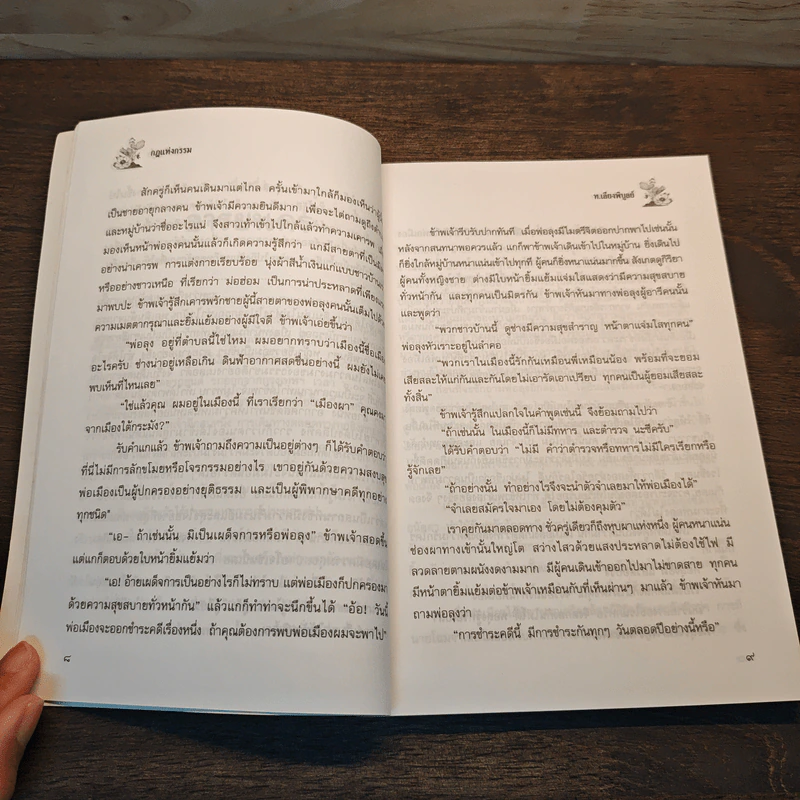 กฎแห่งกรรม
สักครู่ก็เห็นคนเดินมาแต่ไกล ครั้นเข้ามาใกล้ก็มองเห็นว่าผู้
เป็นชายอายุกลางคน ข้าพเจ้ามีความยินดีมาก เพื่อจะไต่ถามดูถึงตำ
และหมู่บ้านว่าชื่ออะไรแน่ จึงสาวเท้าเข้าไปใกล้แล้วทำความเคารพ
มองเห็นหน้าพ่อลุงคนนั้นแล้วก็เกิดความรู้สึกว่า แกมีสายตาที่เป็น
อย่างน่าเคารพ การแต่งกายเรียบร้อย นุ่งผ้าสีน้ำเงินแก่แบบชาวบ้าน
หรืออย่างชาวเหนือ ที่เรียกว่า ม่อฮ่อม เป็นการน่าประหลาดที่เพียง
มาพบปะ ข้าพเจ้ารู้สึกเคารพรักชายผู้นี้สายตาของพ่อลุงคนนั้นเต็มไปด้วย
ความเมตตากรุณาและยิ้มแย้มอย่างผู้มีใจดี ข้าพเจ้าเอ่ยขึ้นว่า
“พ่อลุง อยู่ที่ตำบลนี้ใช่ไหม ผมอยากทราบว่าเมืองนี้ชื่อเมือง
อะไรครับ ช่างน่าอยู่เหลือเกิน ดินฟ้าอากาศสดชื่นอย่างนี้ ผมยังไม่เคย
พบเห็นที่ไหนเลย”
“ใช่แล้วคุณ ผมอยู่ในเมืองนี้ ที่เราเรียกว่า “เมืองผา” คุณคง
จากเมืองใต้กระมัง?”
รับคำแกแล้ว ข้าพเจ้าถามถึงความเป็นอยู่ต่างๆ ก็ได้รับคำตอบว่า
ที่นี่ไม่มีการลักขโมยหรือโจรกรรมอย่างไร เขาอยู่กันด้วยความสงบสุข
พ่อเมืองเป็นผู้ปกครองอย่างยุติธรรม และเป็นผู้พิพากษาคดีทุกอย่าง
ทุกชนิด"
“เอ– ถ้าเช่นนั้น มิเป็นเผด็จการหรือพ่อลุง” ข้าพเจ้าสอดขึ้น
แต่แกก็ตอบด้วยใบหน้ายิ้มแย้มว่า
“เอ! อ้ายเผด็จการเป็นอย่างไรก็ไม่ทราบ แต่พ่อเมืองก็ปกครองมา
ด้วยความสุขสบายทั่วหน้ากัน” แล้วแกก็ทำท่าจะนึกขึ้นได้ “อ้อ! วันนี้
พ่อเมืองจะออกชำระคดีเรื่องหนึ่ง ถ้าคุณต้องการพบพ่อเมืองผมจะพาไป”
๘
ท.เลียงพิบูลย์
ข้าพเจ้ารีบรับปากทันที เมื่อพ่อลุงมีไมตรีจิตออกปากพาไปเช่นนั้น
หลังจากสนทนาพอควรแล้ว แกก็พาข้าพเจ้าเดินเข้าไปในหมู่บ้าน ยิ่งเดินไป
ก็ยิ่งใกล้หมู่บ้านหนาแน่นเข้าไปทุกที ผู้คนก็ยิ่งหนาแน่นมากขึ้น สังเกตดูกิริยา
ผู้คนทั้งหญิงชาย ต่างมีใบหน้ายิ้มแย้มแจ่มใสแสดงว่ามีความสุขสบาย
ทั่วหน้ากัน และทุกคนเป็นมิตรกัน ข้าพเจ้าหันมาทางพ่อลุงผู้อารีคนนั้น
และพูดว่า
“พวกชาวบ้านนี้ ดูช่างมีความสุขสำราญ หน้าตาแจ่มใสทุกคน”
พ่อลุงหัวเราะอยู่ในลำคอ
“พวกเราในเมืองนี้รักกันเหมือนพี่เหมือนน้อง พร้อมที่จะยอม
เสียสละให้แก่กันและกันโดยไม่เอารัดเอาเปรียบ ทุกคนเป็นผู้ยอมเสียสละ
ทั้งสิ้น”
ข้าพเจ้ารู้สึกแปลกใจในคำพูดเช่นนี้ จึงย้อนถามไปว่า
“ถ้าเช่นนั้น ในเมืองนี้ก็ไม่มีทหาร และตำรวจ นะซีครับ”
ได้รับคำตอบว่า “ไม่มี คำว่าตำรวจหรือทหารไม่มีใครเรียกหรือ
รู้จักเลย”
“ถ้าอย่างนั้น ทำอย่างไรจึงจะนำตัวจำเลยมาให้พ่อเมืองได้”
“จำเลยสมัครใจมาเอง โดยไม่ต้องคุมตัว”
เราคุยกันมาตลอดทาง ชั่วครู่เดียวก็ถึงหุบผาแห่งหนึ่ง ผู้คนหนาแน่น
ช่องผาทางเข้านั้นใหญ่โต สว่างไสวด้วยแสงประหลาดไม่ต้องใช้ไฟ มี
ลวดลายตามผนังงดงามมาก มีผู้คนเดินเข้าออกไปมาไม่ขาดสาย ทุกคน
มีหน้าตายิ้มแย้มต่อข้าพเจ้าเหมือนกับที่เห็นผ่านๆ มาแล้ว ข้าพเจ้าหันมา
ถามพ่อลุงว่า
“การชำระคดีนี้ มีการชำระกันทุกๆ วันตลอดปีอย่างนี้หรือ”
๙